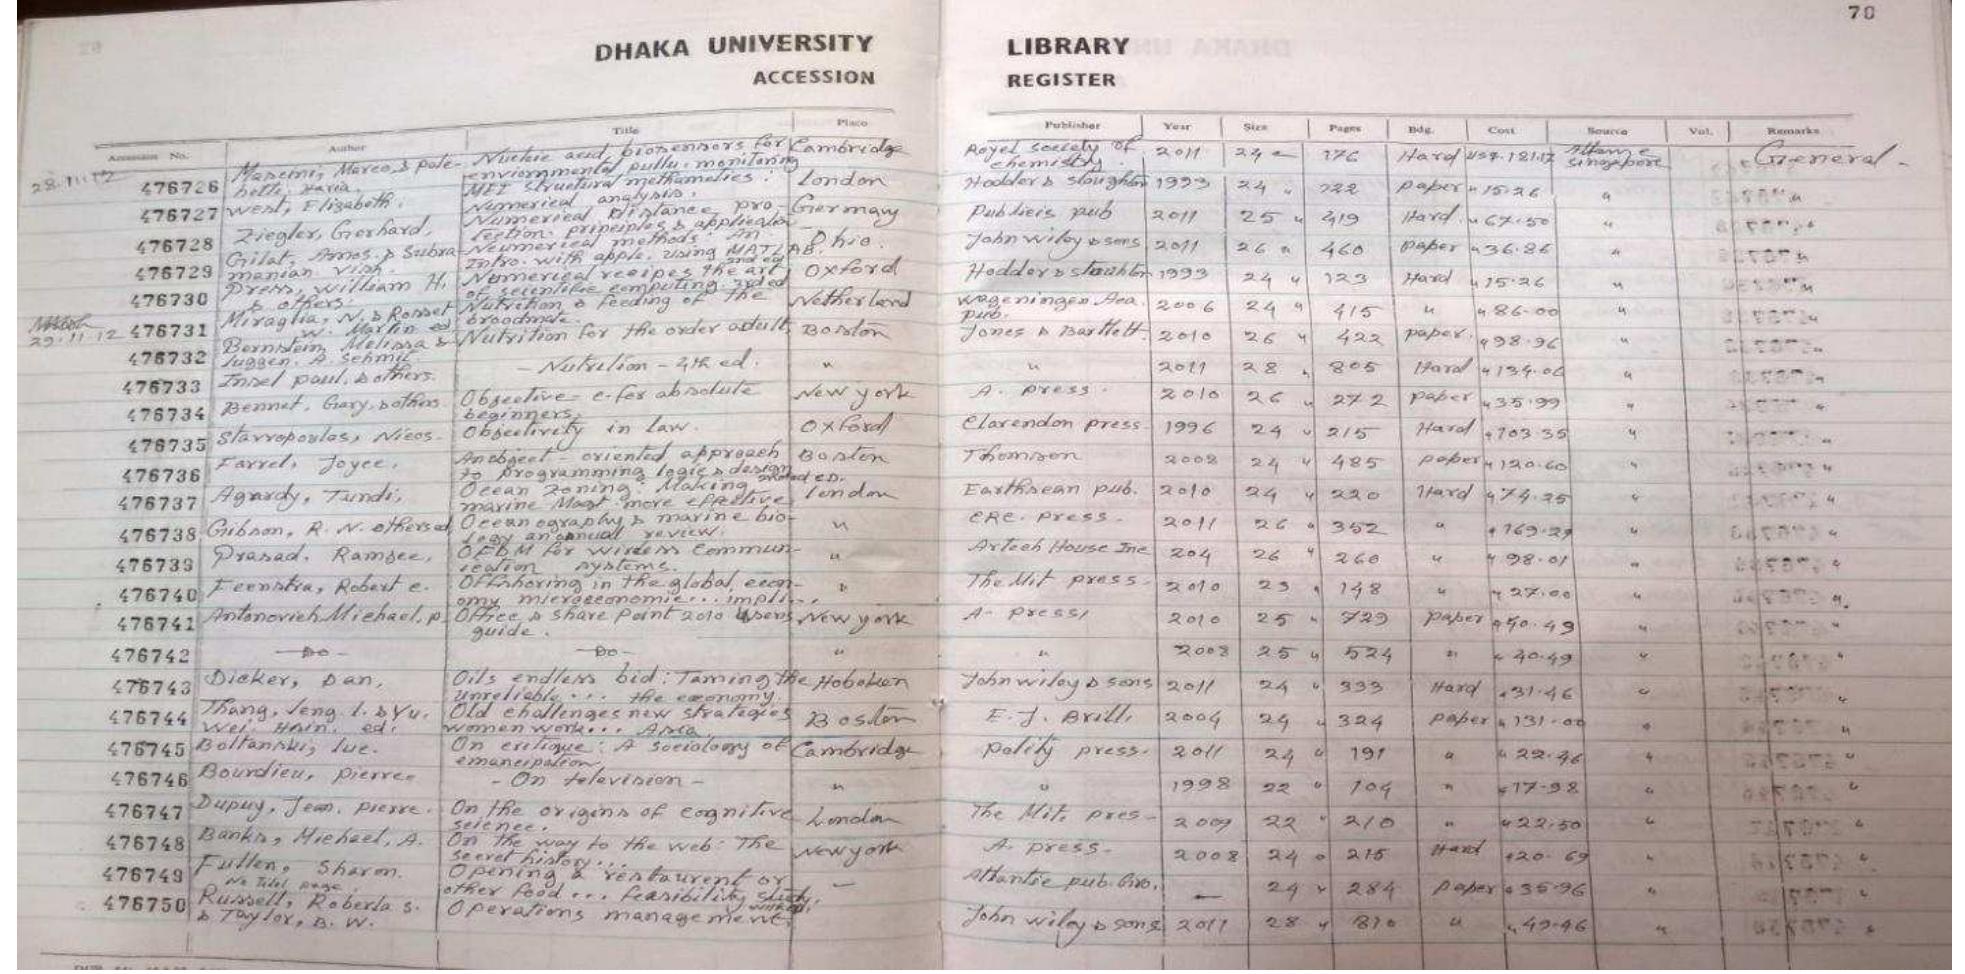 70
DHAKA UNIVERSITY LIBRARY
ACCESSION REGISTER
Accession No. Author Title Place Publisher Year Size Pages Bdg. Cost Source Vol. Remarks
28.11.12 476726 Mascini, Marco, & Pale- Nucleic acid biosensors for Cambridge Royel society of 2011 24 176 Hard Singapore General
chemistry.
476727 West, Elizabeth. MEI structural methametics: London Hodder & Stoughton 1993 24 " 222 paper " 15.26 "
Numerical analysis.
476728 Ziegler, Gerhard, Numerical Distance pro- Germany Publicis pub 2011 25 " 419 Hard " 67.50 "
tection: principles & application
476729 Gilat, Amos. & Subra- Neumerical methods: An Ohio. John Wiley & sons 2011 26 " 460 paper " 36.86 "
manian Vish. Intro. with apple. using MATLAB. 2nd ed
476730 Press, William H. Numerical recipes the art Oxford 1993 24 " 123 Hard " 15.26 "
& others. of scientific computing 3rd ed
29.11.12 476731 Miraglia, N. & Rosset Nutrition & feeding of the Netherland Wageningen Aca. 2006 24 " 415 " " 86.00 "
W. Martin ed broodmate pub.
476732 Bernstein, Melissa & Nutrition for the order adult, Boston Jones & Bartlett. 2010 26 " 422 paper. " 98.96 "
Luggen. A. Schmit.
476733 Insel paul. & others. - Nutrition - 4th ed. " " 2011 28 " 805 Hard " 134.06 "
476734 Bennet, Gary, & others Objective - c- for absolute New york A. press. 2010 26 " 272 paper " 35.99 "
beginners.
476735 Stavropoulos, Nicos. Objectivity in law. Oxford Clarendon press 1996 24 " 215 Hard " 103.35 "
476736 Farrel, Joyce, An object oriented approach Boston Thomson 2008 24 " 485 paper " 120.60 "
to programming logic & design
476737 Agardy, Tundi, Ocean zoning: Making London Earthscan pub. 2010 24 " 220 Hard " 74.25 "
marine Magt more effective
476738 Gibson, R. N. others ed Oceanography & marine bio- " CRC. press. 2011 26 " 352 " " 169.29 "
logy an annual review.
476739 Prasad. Ramjee, OFDM for wireless commun- " Artech House Inc 204 26 " 260 " " 98.01 "
ication systems.
476740 Feenstra, Robert c. Offshoring in the global econ- " The Mit press. 2010 23 " 148 " " 27.00 "
omy microeconomic... impli...
476741 Antonovich Michael, p. Office & Share Point 2010 users New york A. press, 2010 25 " 729 paper " 40.49 "
guide.
476742 -Do- -Do- " " 2008 25 " 524 " " 40.49 "
476743 Dicker, Dan, Oils endless bid: Taming the Hoboken John wiley & sons 2011 24 " 333 Hard " 31.46 "
unreliable... the economy.
476744 Thang, leng l. & Yu. Old challenges new strategies Boston E. J. Brill, 2004 24 " 324 paper " 131.00 "
Wei. Hsin. ed. women work... Asia
476745 Boltanski, luc. On critique: A sociology of Cambridge polity press. 2011 24 " 191 " " 22.46 "
emancipation.
476746 Bourdieu, pierre - On television - " " 1998 22 " 104 " " 17.98 "
476747 Dupuy, Jean. pierre. On the origins of cognitive London The Mit. pres- 2009 22 " 210 " " 22.50 "
science.
476748 Banks, Michael, A. On the way to the web: The New york A. press. 2008 24 " 215 Hard " 20.69 "
secret history...
476749 Fullen, Sharon. Opening a restaurent or — Atlantic pub. Gro. — 24 " 284 paper " 35.96 "
No Title page. other food... feasibility study.
476750 Russell, Roberta S. Operations management, John wiley & sons 2011 28 " 810 " " 49.46 "
& Taylor, B. W.